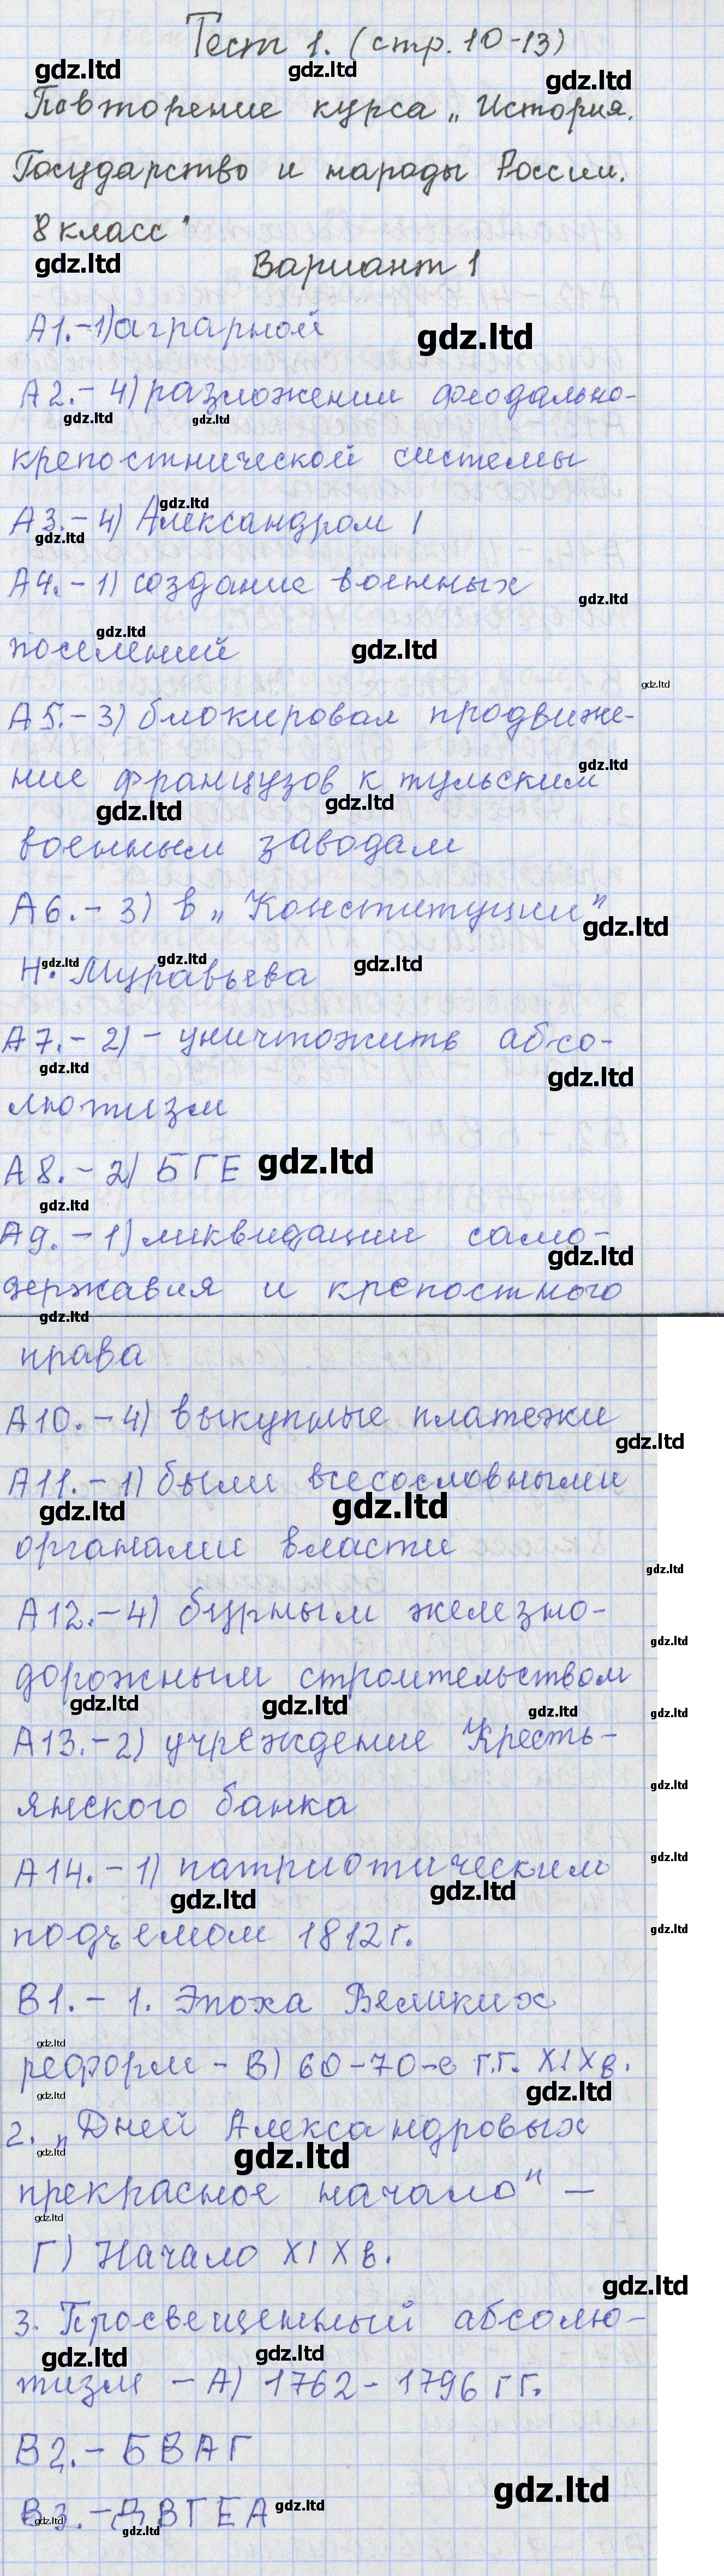 Тест 1. (стр. 10-13)
gdz.ltd gdz.ltd gdz.ltd
Повторение курса „История.
Государство и народы России.
8 класс"
gdz.ltd
Вариант 1
А1.-1) аграрной
gdz.ltd
А2.-4) разложении феодально-
gdz.ltd gdz.ltd
крепостнической системы
gdz.ltd
А3.-4) Александром I
gdz.ltd
А4.-1) создание военных
gdz.ltd
gdz.ltd
поселений
gdz.ltd
gdz.ltd
А5.-3) блокировал продвиже-
gdz.ltd
ние французов к тульским
gdz.ltd gdz.ltd
военным заводам
А6.-3) в „Конституции"
gdz.ltd
gdz.ltd gdz.ltd gdz.ltd
Н. Муравьева
А7.-2) - уничтожить абсо-
gdz.ltd gdz.ltd
лютизм
А8.-2) БГЕ
gdz.ltd
gdz.ltd
А9.-1) ликвидации само-
gdz.ltd
державия и крепостного
gdz.ltd
права
А10.-4) выкупные платежи
gdz.ltd
А11.-1) были всесословными
gdz.ltd gdz.ltd
органами власти
gdz.ltd
А12.-4) бурным железно-
gdz.ltd
дорожным строительством
gdz.ltd gdz.ltd gdz.ltd gdz.ltd
А13.-2) учреждение Кресть-
gdz.ltd
янского банка
gdz.ltd
А14.-1) патриотическим
gdz.ltd gdz.ltd
подъемом 1812 г.
gdz.ltd
В1.-1. Эпоха Великих
gdz.ltd
реформ - В) 60-70-е г.г. XIX в.
gdz.ltd gdz.ltd
2. „Дней Александровых
gdz.ltd gdz.ltd
прекрасное начало" -
gdz.ltd
Г) Начало XIX в.
gdz.ltd
3. Просвещенный абсолю-
gdz.ltd gdz.ltd
тизм - А) 1762-1796 гг.
В2.-БВАГ
gdz.ltd
В3.-ДВГЕА
gdz.ltd
gdz.ltd
gdz.ltd